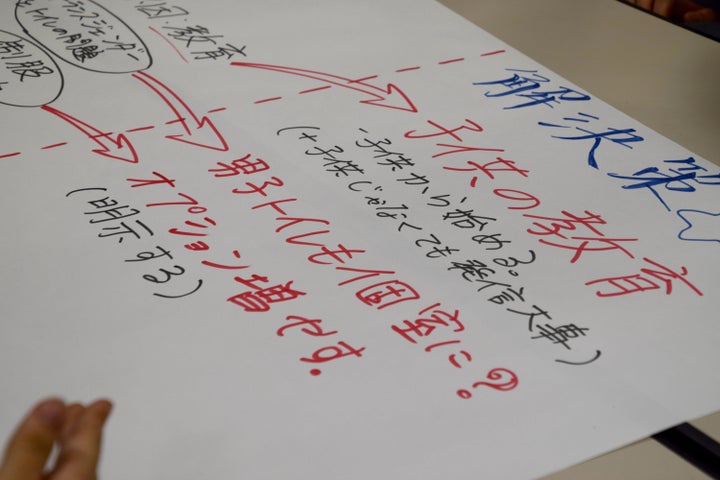 解決案
因:教育
子供の教育
-子供から始める。
(+子供じゃなくても発信大事)
トランスジェンダー
トイレの問題
男子トイレも個室に?
制服
オプション増やす.
(明示する)